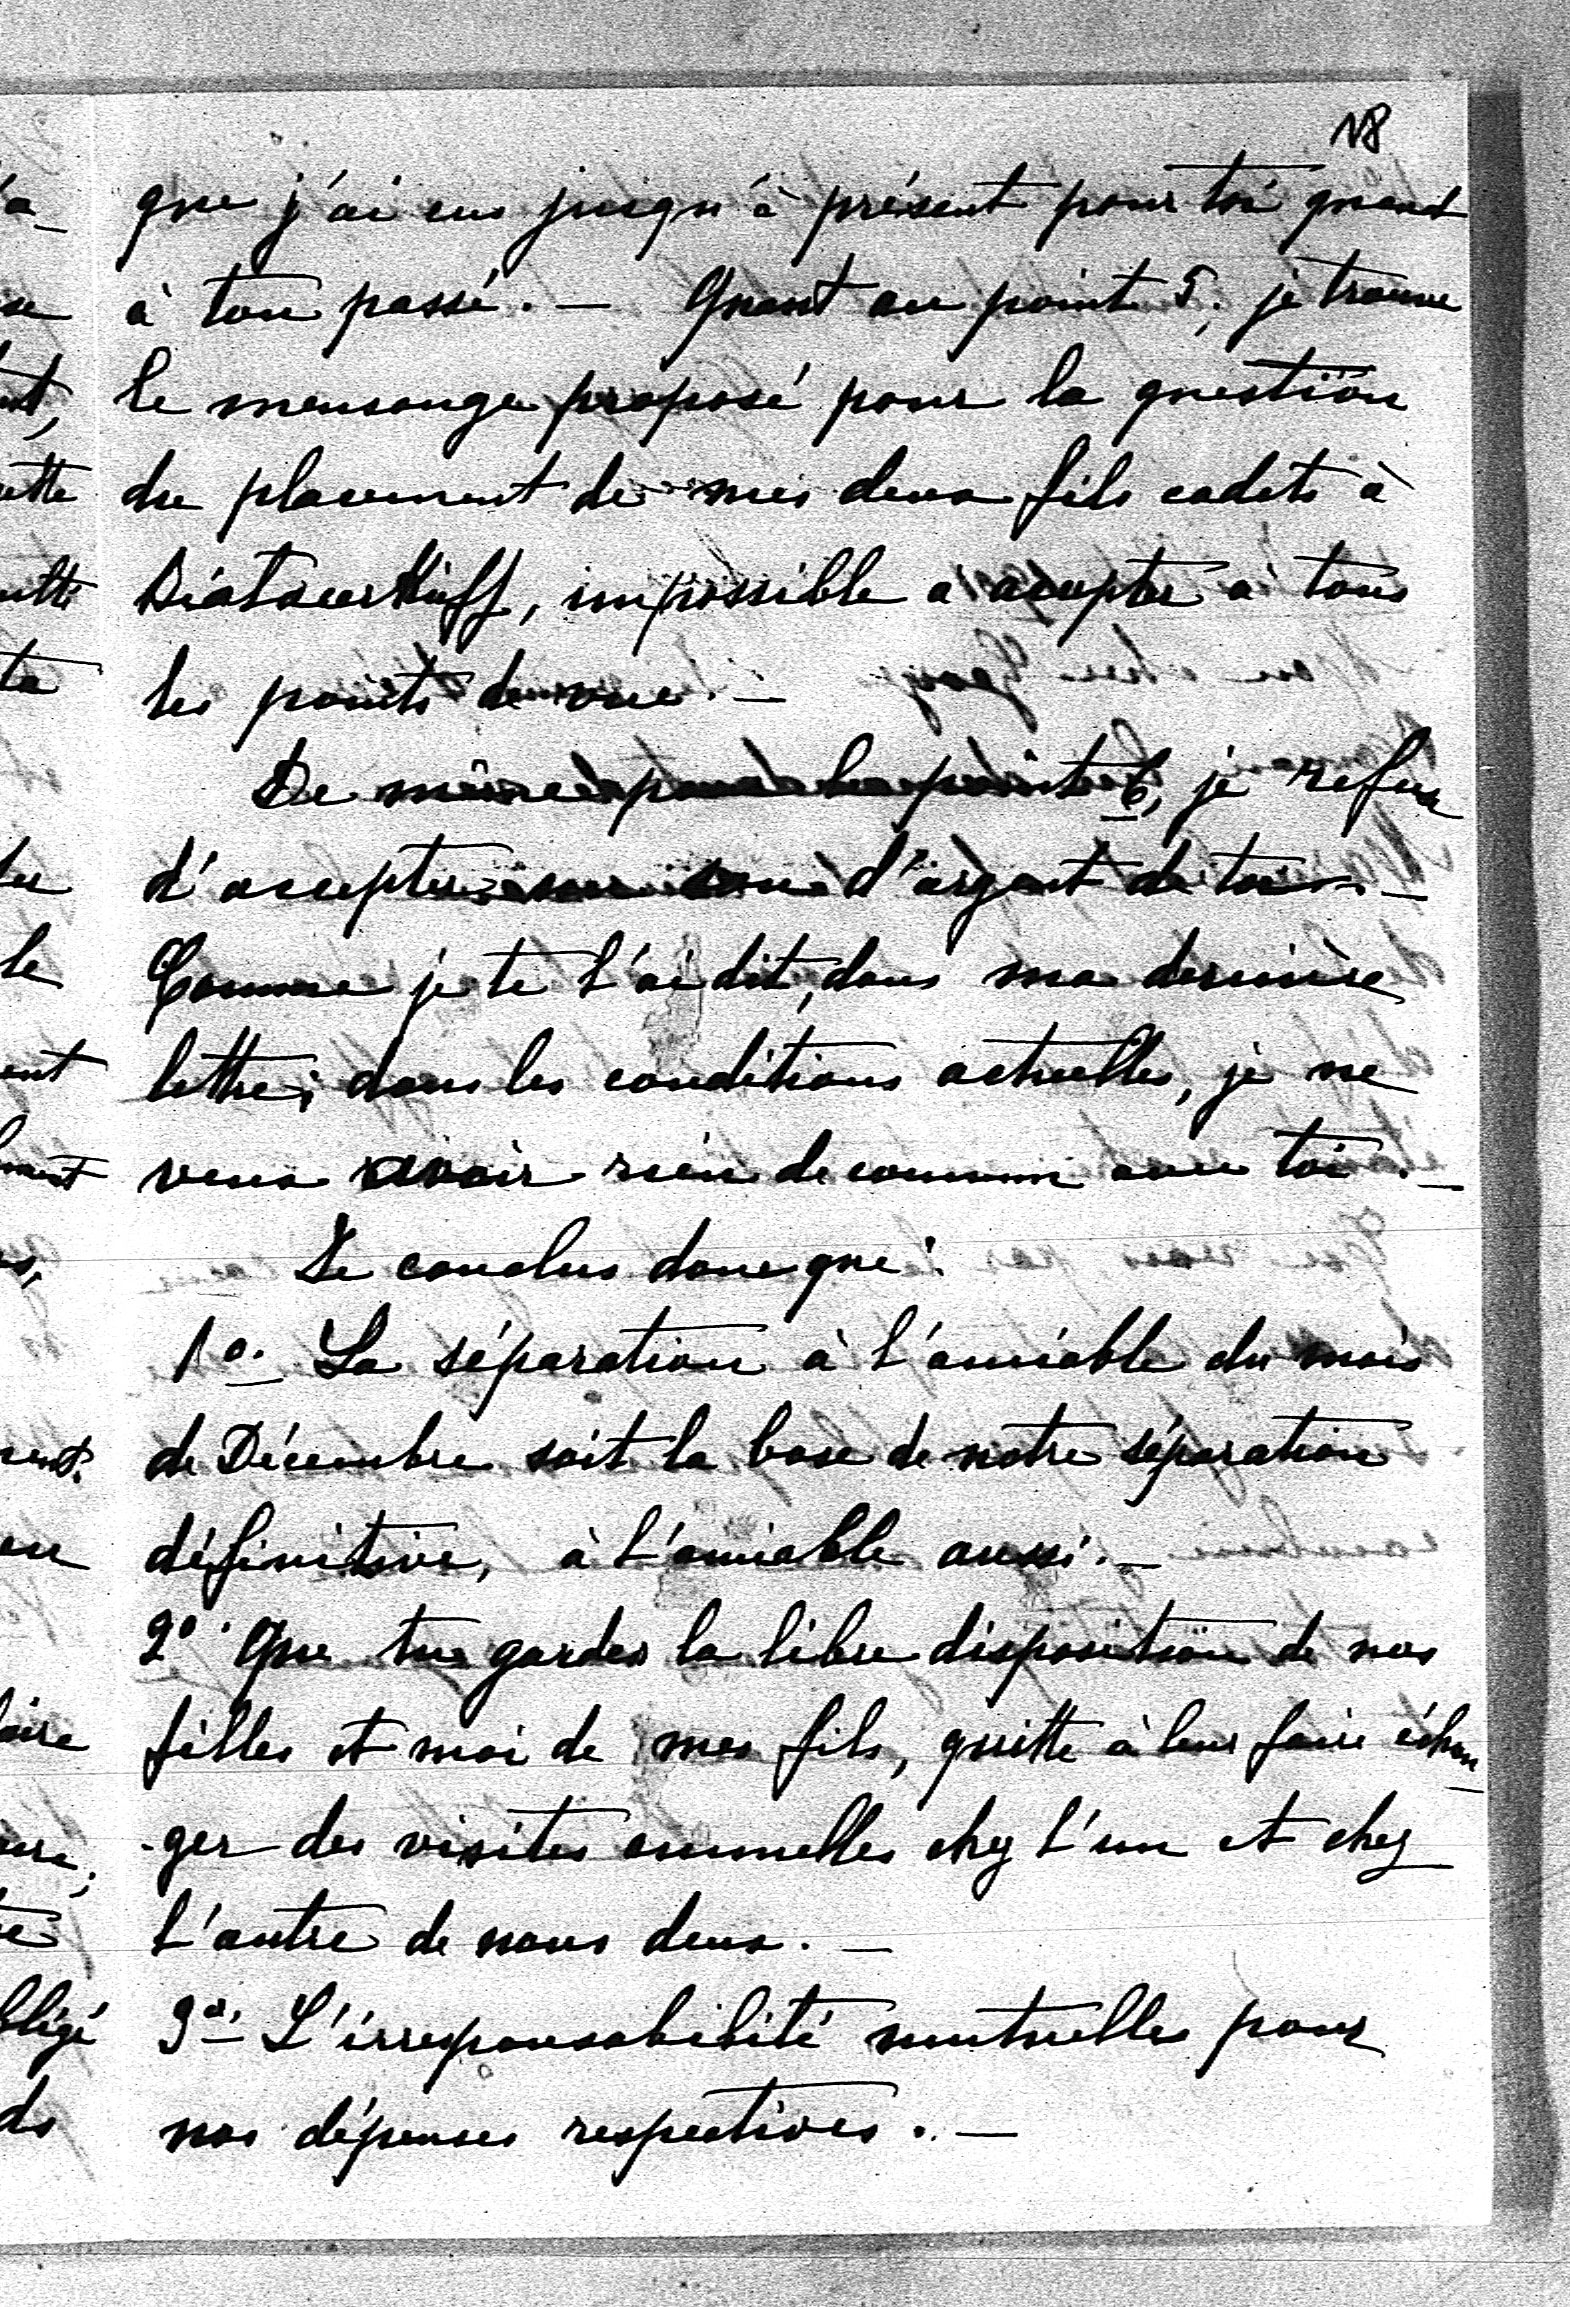 18
que j'ai eus jusqu'à présent pour toi quand
à ton passé. — Quant au point 5, je trouve
le mensonge proposé pour la question
du placement de mes deux fils cadets à
impossible a accepter a tous
les points de vue. —
De même pour le point 6, je refuse
d'accepter un sou d'argent de toi. —
Comme je te l'ai dit, dans ma dernière
lettre; dans les conditions actuelles, je ne
veux avoir rien de commun avec toi. —
Je conclus donc que:
1o. La séparation à l'amiable du mois
de Décembre soit la base de notre séparation
définitive, à l'amiable aussi. —
2o. Que tu gardes la libre disposition de nos
filles et moi de mes fils, quitte à leur faire échan
-ger des visites annuelles chez l'un et chez
l'autre de nous deux. —
3o. L'irresponsabilité mutuelle pour
nos dépenses respectives. —